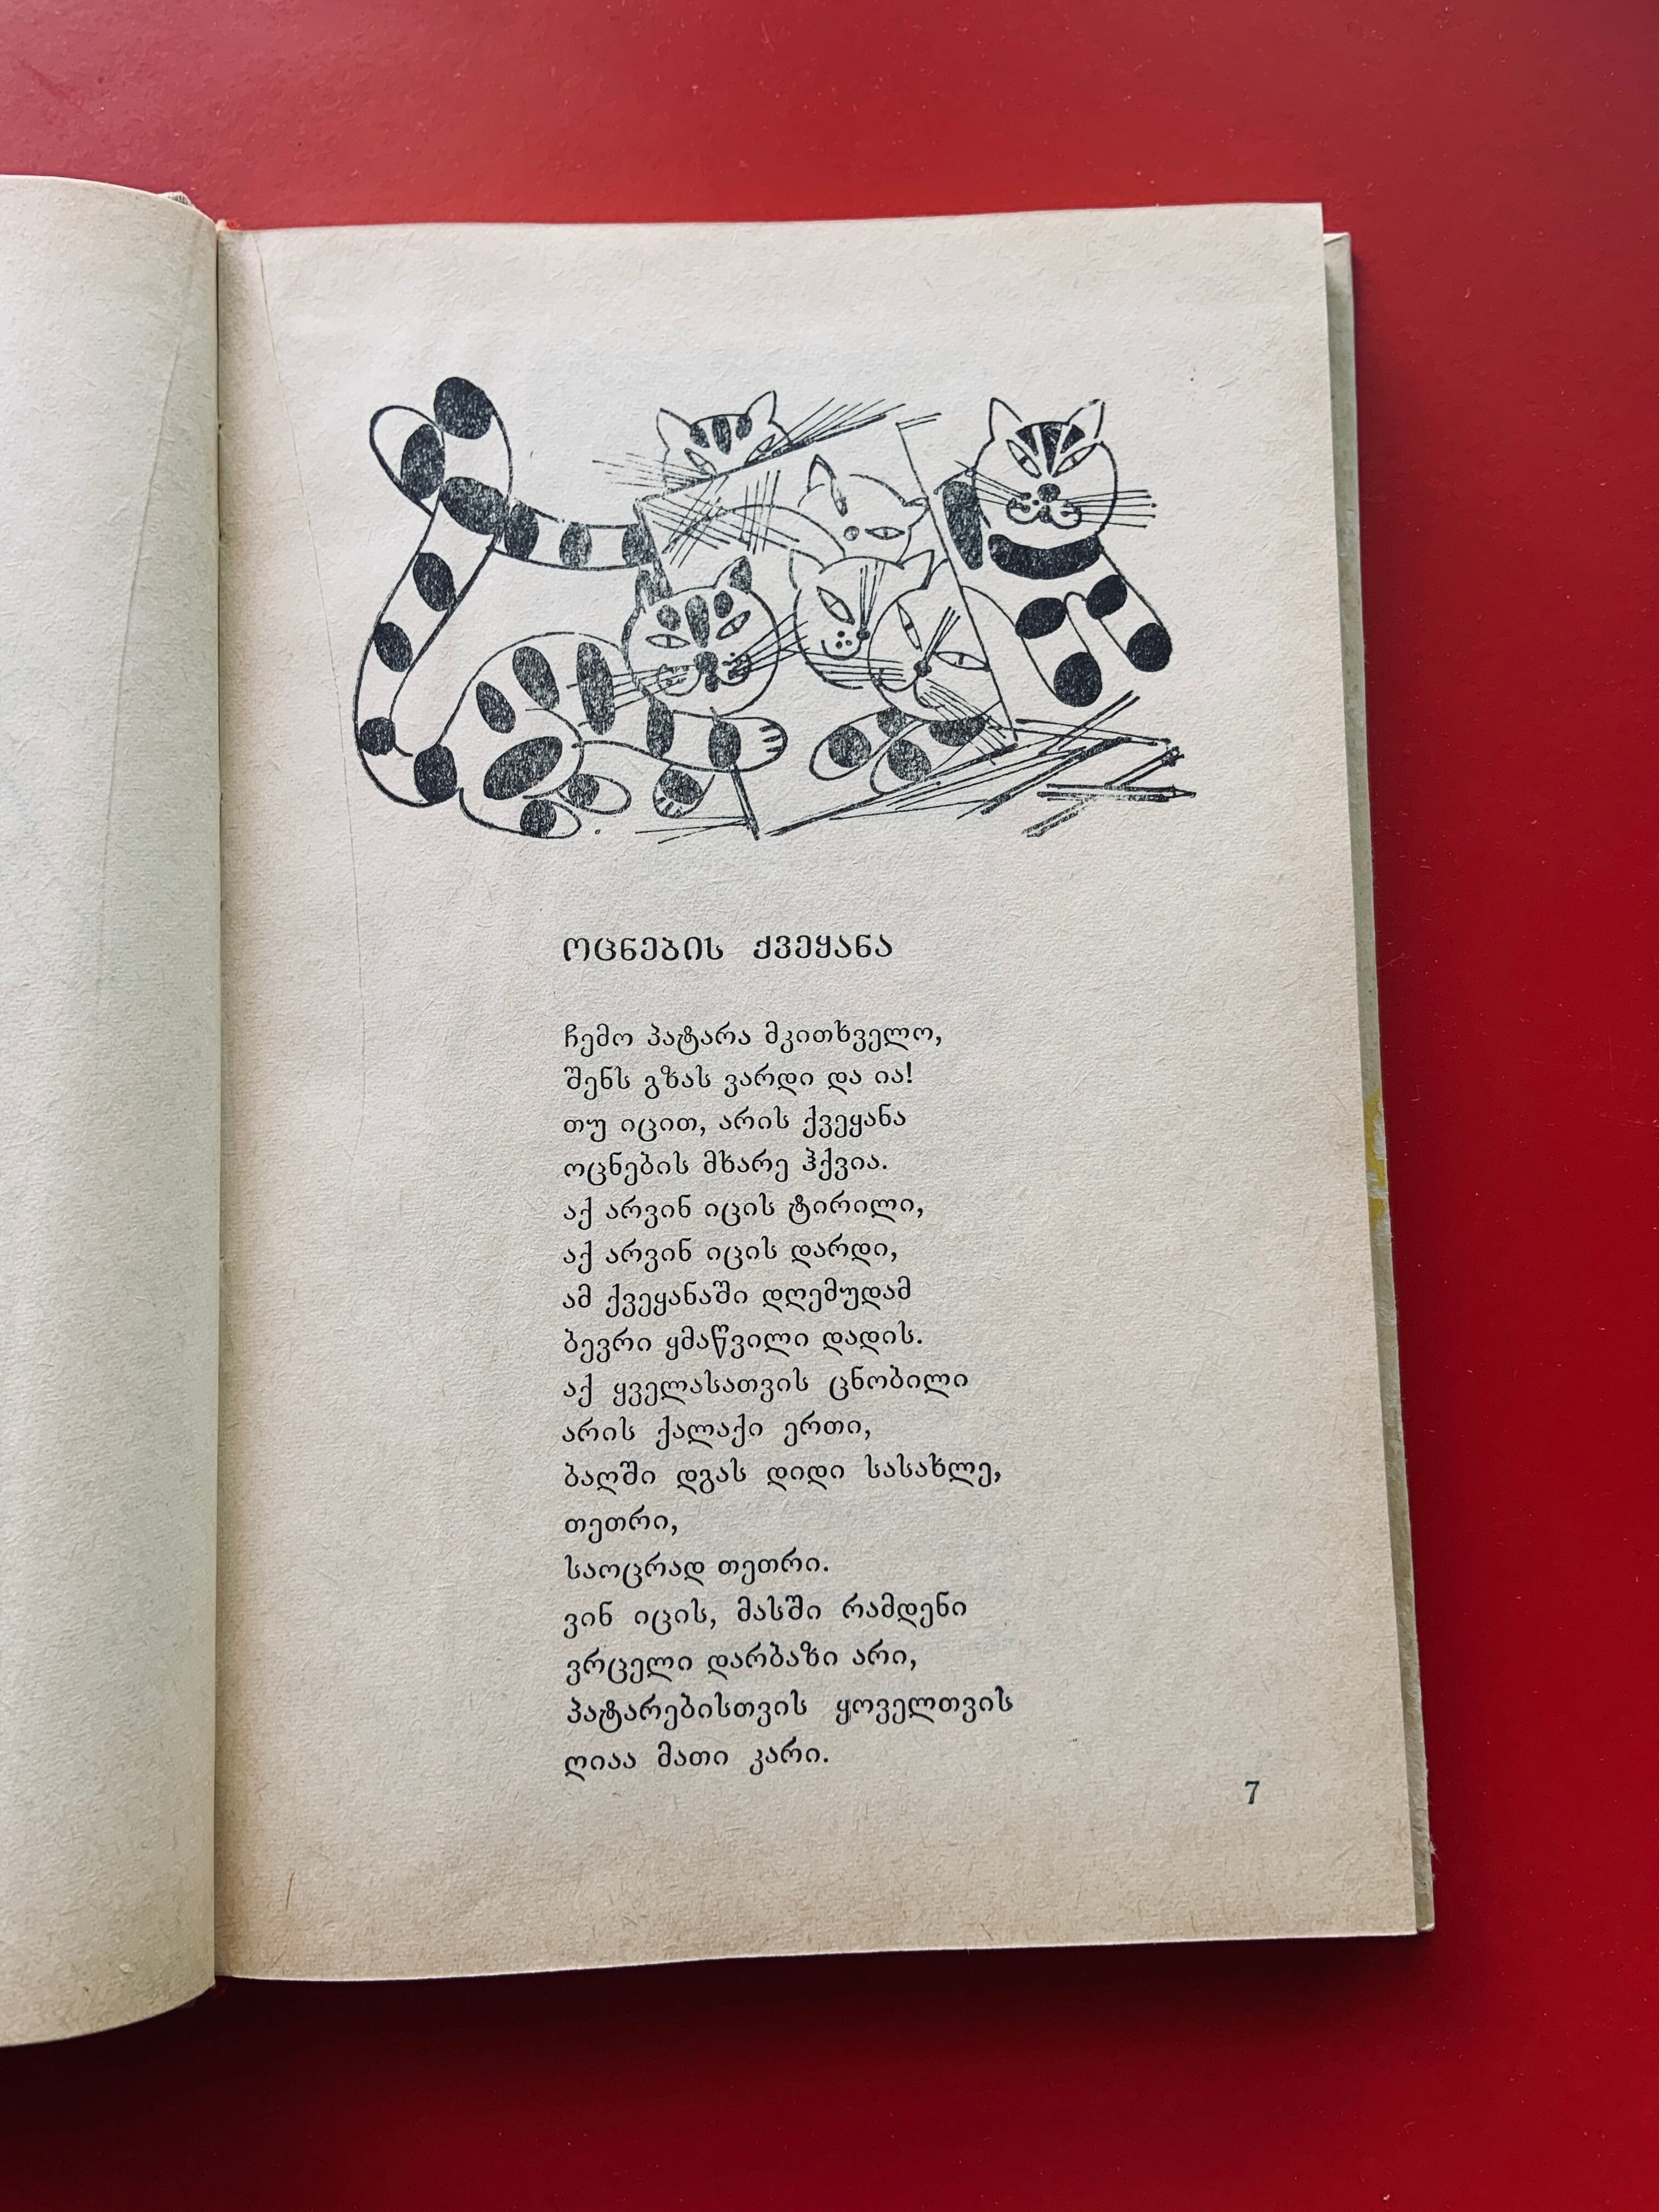 ოცნების ქვეყანა
ჩემო პატარა მკითხველო,
შენს გზას ვარდი და ია!
თუ იცით, არის ქვეყანა
ოცნების მხარე ჰქვია.
აქ არვინ იცის ტირილი,
აქ არვინ იცის დარდი,
ამ ქვეყანაში დღემუდამ
ბევრი ყმაწვილი დადის.
აქ ყველასათვის ცნობილი
არის ქალაქი ერთი,
ბაღში დგას დიდი სასახლე,
თეთრი,
საოცრად თეთრი.
ვინ იცის, მასში რამდენი
ვრცელი დარბაზი არი,
პატარებისთვის ყოველთვის
ღიაა მათი კარი.
7